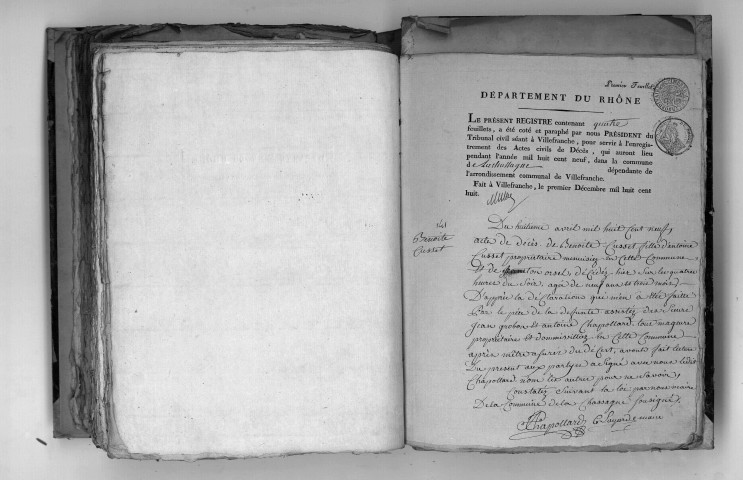 Premier Feuillet
DÉPARTEMENT DU RHÔNE
LE PRÉSENT REGISTRE contenant quatre
feuillets, a été coté et paraphé par nous PRÉSIDENT du
Tribunal civil séant à Villefranche, pour servir à l'enregis-
trement des Actes civils de Décès, qui auront lieu
pendant l'année mil huit cent neuf, dans la commune
de Lachassagne dépendante de
l'arrondissement communal de Villefranche.
Fait à Villefranche, le premier Décembre mil huit cent
huit.
Benoite
Cusset
Du huitieme avril mil huit Cent neuf,
acte de décès de Benoite Cusset fille d'antoine
Cusset propriétaire en Cette Commune
et de décédée hier Sur les quatre
heures du Soir, agée de neuf ans et trois mois,
D'après la déClaration que m'en a été faitte
Par le père de la defunte assistés des Sieurs
Jean et antoine Chapollard, tous majeure
propriétaire et en Cette Commune
après du décert, avons fait lecture
Du present aux partyes a Signé avec nous ledit
Chapollard non les autres pour ne Savoir,
Constatés Suivant la loi par nous maire
De la Commune de la Chassagne Soussigné,
Chapollard maire